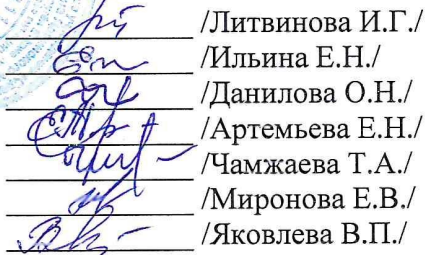 /Литвинова И.Г./
/Ильина Е.Н./
/Данилова О.Н./
/Артемьева Е.Н./
/Чамжаева Т.А./
/Миронова Е.В./
/Яковлева В.П./